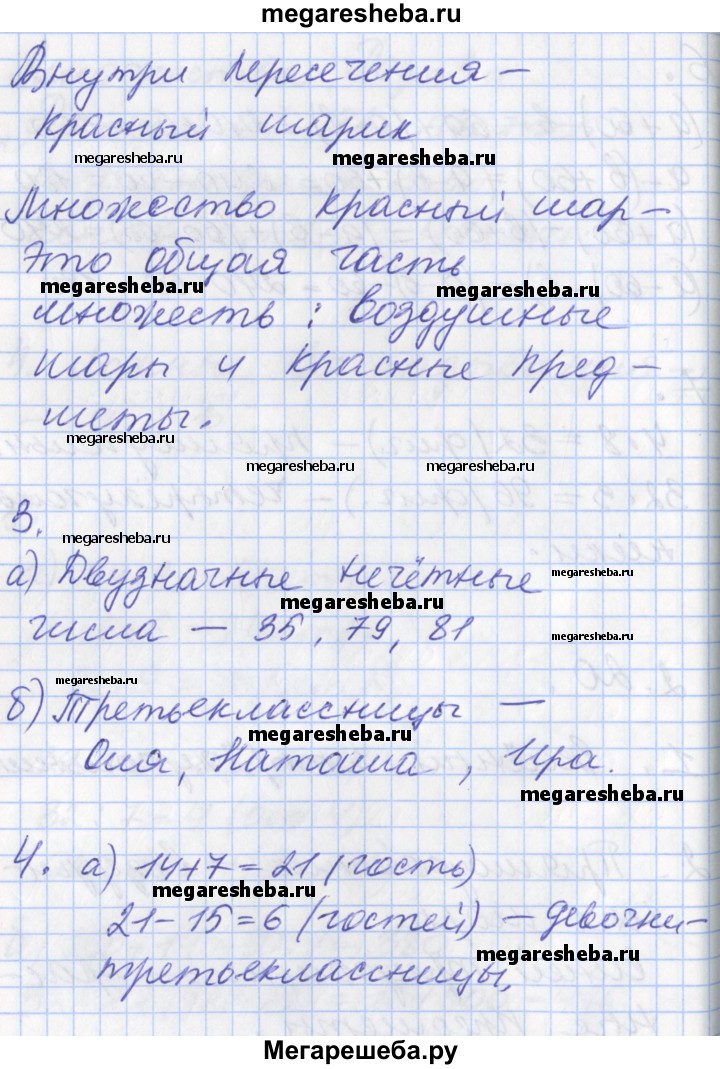 megaresheba.ru
Внутри пересечения –
красный шарик
megaresheba.ru megaresheba.ru
Множество красный шар –
это общая часть
megaresheba.ru megaresheba.ru
множеств : воздушные
шары и красные пред-
меты.
megaresheba.ru
megaresheba.ru megaresheba.ru
3.
megaresheba.ru
а) Двузначные нечётные
megaresheba.ru
megaresheba.ru
числа – 35, 79, 81
megaresheba.ru
megaresheba.ru
б) Третьеклассницы –
megaresheba.ru
Оля, Наташа, Ира.
megaresheba.ru
4. а) 14+7=21 (гость)
megaresheba.ru
21-15=6 (гостей) – девочки-
megaresheba.ru
третьеклассницы.
Мегарешеба.ру